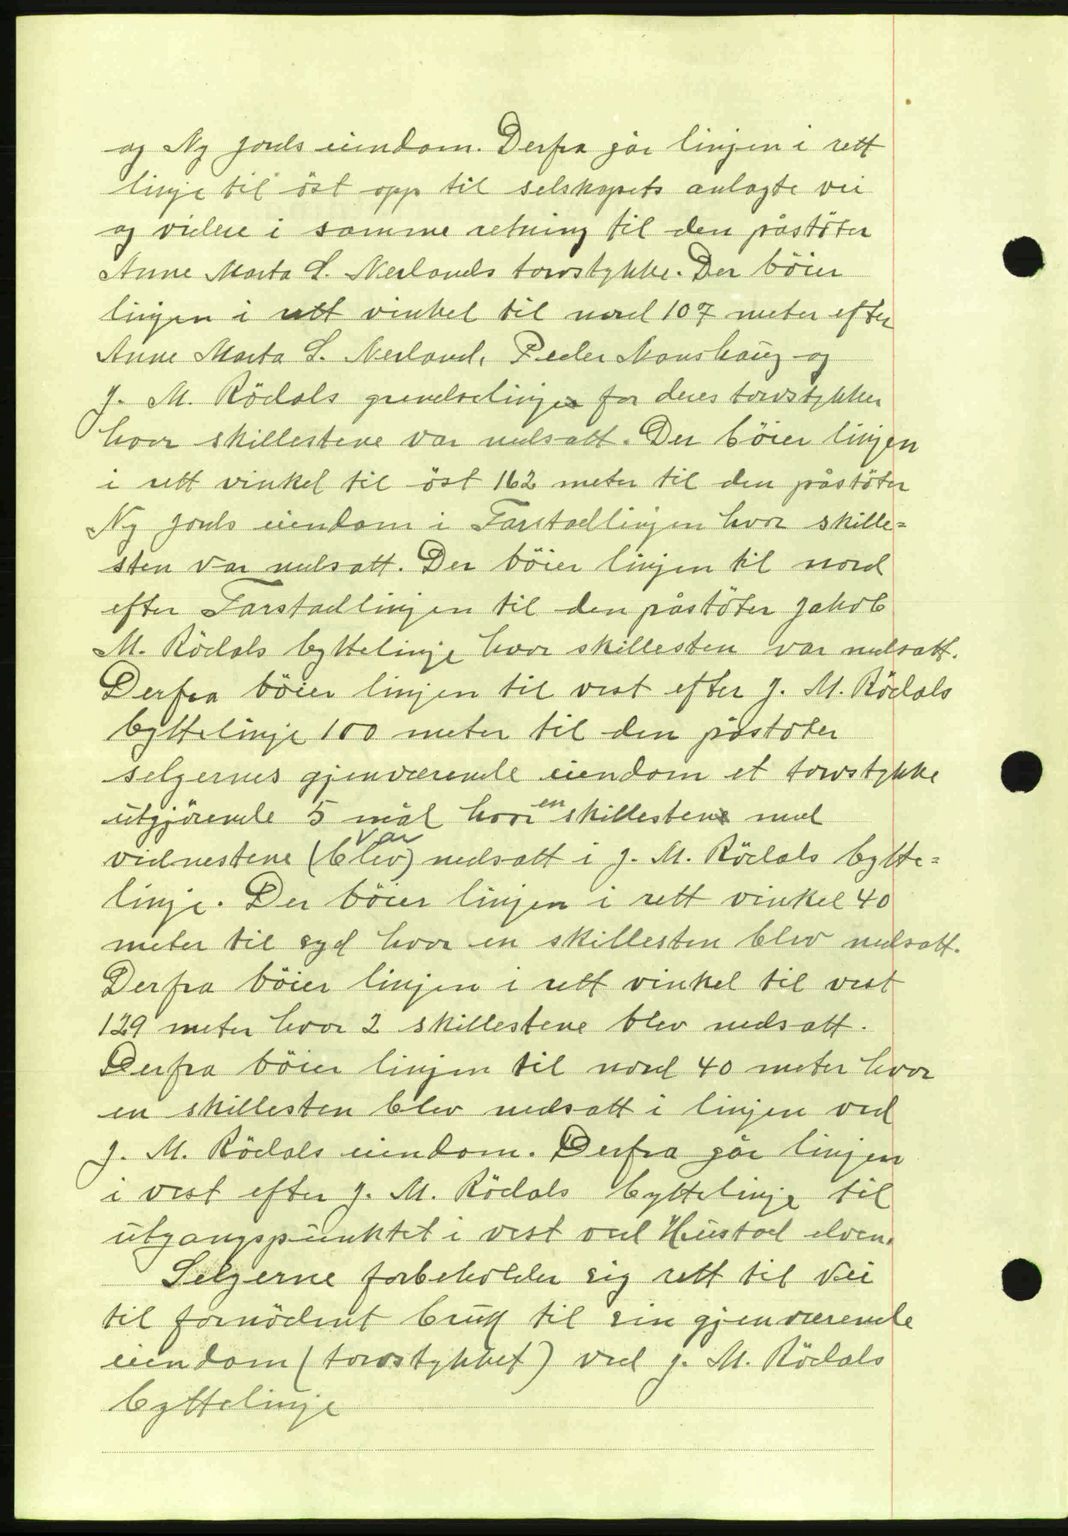 og Ny Jords eiendom. Derfra går linjen i rett
linje til öst opp til selskapets anlagte vei
og videre i samme retning til den påstöter
Anne Marta S. Nerlands torvstykke. Der böier
linjen i rett vinkel til nord 107 meter efter
Anne Marta S. Nerland, Peder Monshaug og
J. M. Rödals grendselinje for deres torvstykker
hvor skillestene var nedsatt. Der böier linjen
i rett vinkel til öst 162 meter til den påstöter
Ny Jords eiendom i Farstadlinjen hvor skille=
sten var nedsatt. Der böier linjen til nord
efter Farstadlinjen til den påstöter Jakob
M. Rödals byttelinje hvor skillesten var nedsatt.
Derfra böier linjen til vest efter J. M. Rödals
byttelinje 100 meter til den påstöter
selgernes gjenværende eiendom et torvstykke
utgjörende 5 mål hvor en skillesten med
vidnestene (blev) var nedsatt i J. M. Rödals bytte=
linje. Der böier linjen i rett vinkel 40
meter til syd hvor en skillesten blev nedsatt.
Derfra böier linjen i rett vinkel til vest
129 meter hvor 2 skillestene blev nedsatt.
Derfra böier linjen til nord 40 meter hvor
en skillesten blev nedsatt i linjen ved
J. M. Rödals eiendom. Derfra går linjen
i vest efter J. M. Rödals byttelinje til
utgangspunktet i vest ved Hustad elven.
Selgerne forbeholder sig rett til vei
til fornödent bruk til sin gjenværende
eiendom (torvstykket) ved J. M. Rödals
byttelinje